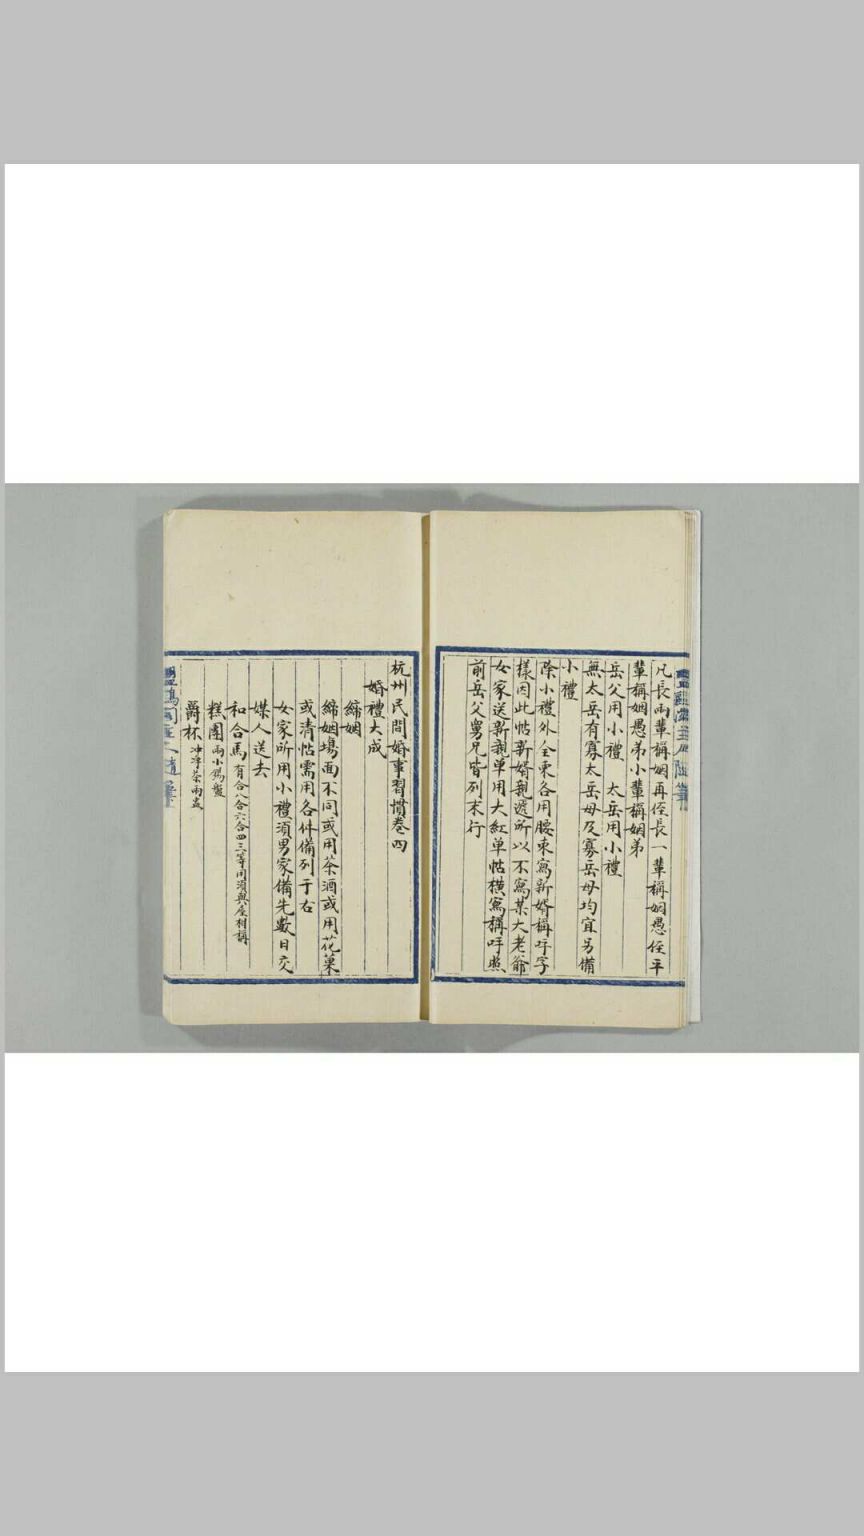 凡長兩輩稱姻再侄長一輩稱姻愚侄平
輩稱姻愚弟小輩稱姻弟
岳父用小禮　太岳用小禮
無太岳有寡太岳母及寡岳母均宜另備
小禮
除小禮外全柬各用腰束寫新婿稱呼字
樣因此帖新婿親遞所以不寫某大老爺
女家送新親單用大紅单帖橫寫稱呼照
前岳父舅兄皆列末行
杭州民間婚事習慣卷四
婚禮大成
締姻
締姻塲面不同或用茶酒或用花菓
或清帖需用各件備列于右
女家所用小禮須男家備先數日交
媒人送去
和合馬有合八合六合四三等用須與座相稱
糕團兩小錫盤
爵杯冲淨茶兩盅
隨筆